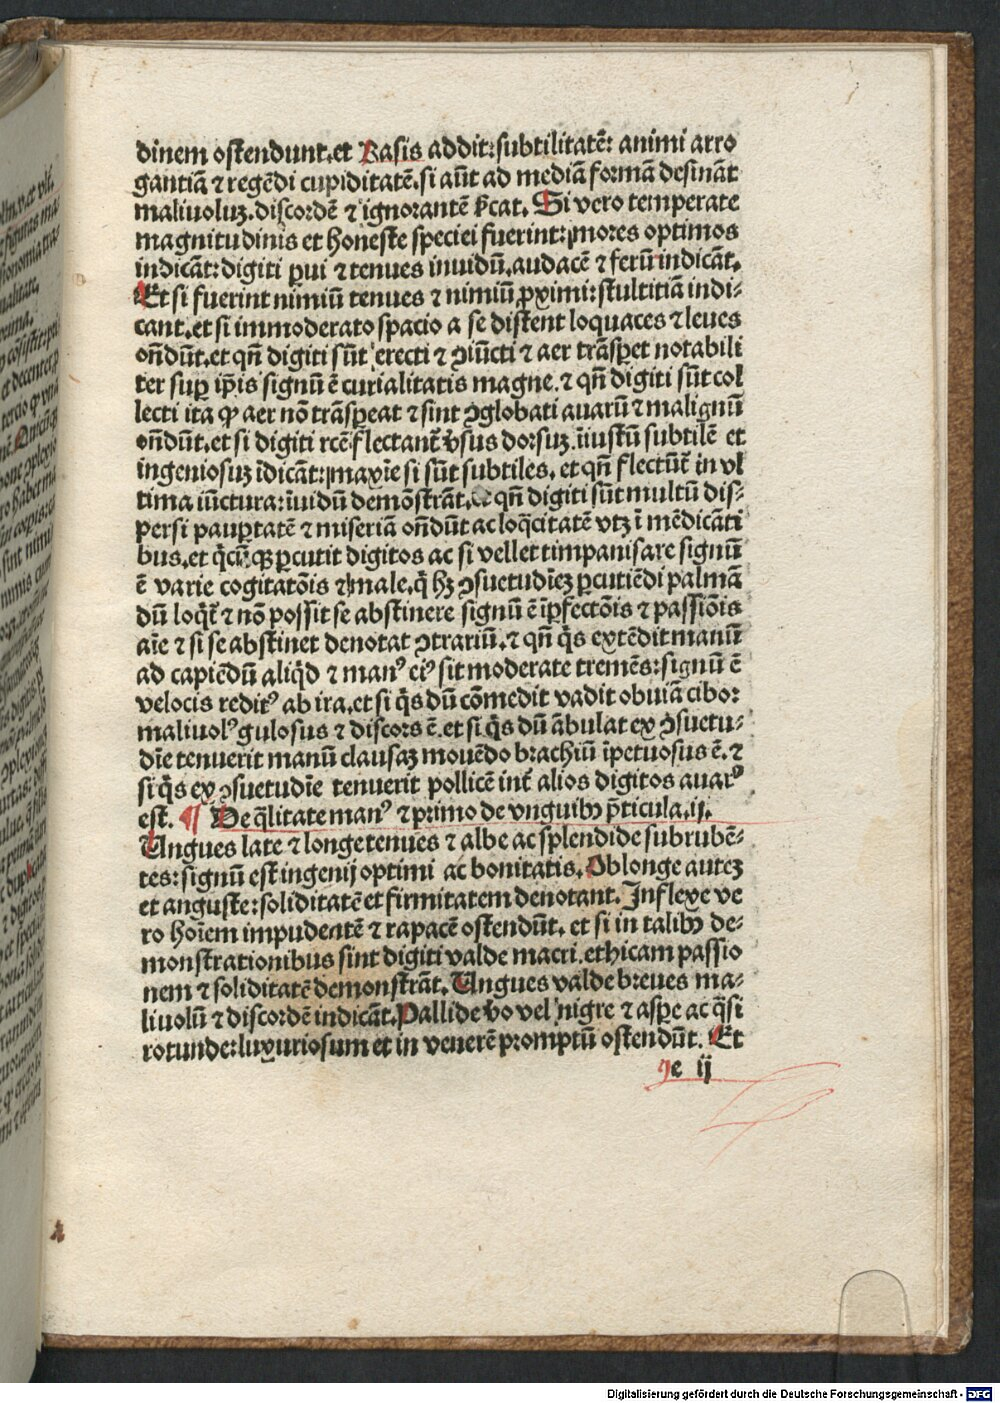 dinem ostendunt.et Rasis addit:subtilitatē: animi arro
gantiā ⁊ regēdi cupiditatē.si aūt ad mediā formā desināt
maliuoluꝫ.discordē ⁊ ignorantē p̄cat. Si vero temperate
magnitudinis et honeste speciei fuerint:mores optimos
indicāt:digiti ꝑui ⁊ tenues inuidū.audacē ⁊ ferū indicāt.
Et si fuerint nimiū tenues ⁊ nimiū ꝓximi:stultitiā indi-
cant.et si immoderato spacio a se distent loquaces ⁊ leues
oñdūt.et qñ digiti sūt erecti ⁊ ꝯiūcti ⁊ aer trāsꝑet notabili
ter suꝑ ip̄is signū ē curialitatis magne.⁊ qñ digiti sūt col
lecti ita ꝙ aer nō trāsꝑeat ⁊ sint ꝯglobati auarū ⁊ malignū
oñdūt.et si digiti rcē flectant᷑ v̓sus dorsuꝫ.iiustū subtilē et
ingeniosuꝫ īdicāt:maxīe si sūt subtiles. et qñ flectūt᷑ in vl
tima iūctura:īuidū demōstrāt. qñ digiti sūt multū dis-
persi pauꝑtatē ⁊ miseriā oñdūt ac loq̄citatē vtꝫ ī mēdicāti
bus.et q̄cūqꝫ ꝑcutit digitos ac si vellet timpanisare signū
ē varie cogitatōis ⁊ male.q̇ hꝫ ꝯsuetudīeꝫ ꝑcutiēdi palmā
dū loq̄t᷑ ⁊ nō possit se abstinere signū ē īꝑfectōis ⁊ passiōis
aīe ⁊ si se abstinet denotat ꝯtrariū.⁊ qñ q̇s extēdit manū
ad capiēdū aliq̇d ⁊ manꝰ eiꝰ sit moderate tremēs:signū ē
velocis reditꝰ ab ira.et si q̇s dū cōmedit vadit obuiā cibo:
maliuolꝰ gulosus ⁊ discors ē.et si q̇s dū ābulat ex ꝯsuetu-
dīe tenuerit manū clausaꝫ mouēdo brachiū īpetuosus ē.⁊
si q̇s ex ꝯsuetudīe tenuerit pollicē int᷑ alios digitos auarꝰ
est. ¶ De q̄litate manꝰ ⁊ primo de vnguibꝫ p̄ticula.ij.
Ungues late ⁊ longe tenues ⁊ albe ac splendide subrubē-
tes:signū est ingenij optimi ac bonitatis. Oblonge auteꝫ
et anguste:soliditatē et firmitatem denotant. Inflexe ve
ro hoīem impudentē ⁊ rapacē ostendūt. et si in talibꝫ de-
monstrationibus sint digiti valde macri.ethicam passio
nem ⁊ soliditatē demonstrāt. Ungues valde breues ma-
liuolū ⁊ discordē indicāt.Pallide v̓o vel nigre ⁊ aspe ac q̄si
rotunde:luxuriosum et in venerē promptū ostendūt. Et
e ij
Digitalisierung gefördert durch die Deutsche Forschungsgemeinschaft - DFG